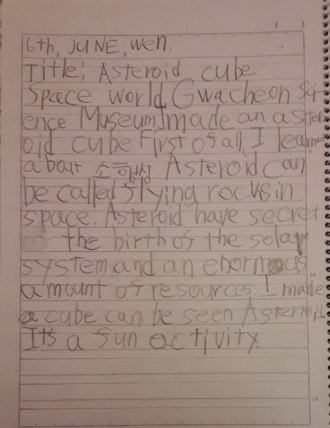 6th, JUNE, wen.
Title: Asteroid cube
Space world, Gwacheon Sci
ence Museum I made an aster
oid cube First of all, I learned
about 소행성 Asteroid can
be called flying rocks in
space. Asteroid have secret
of the birth of the solar
system and an enormous
amount of resources. I made
a cube can be seen Asteroid.
It's a fun activity.